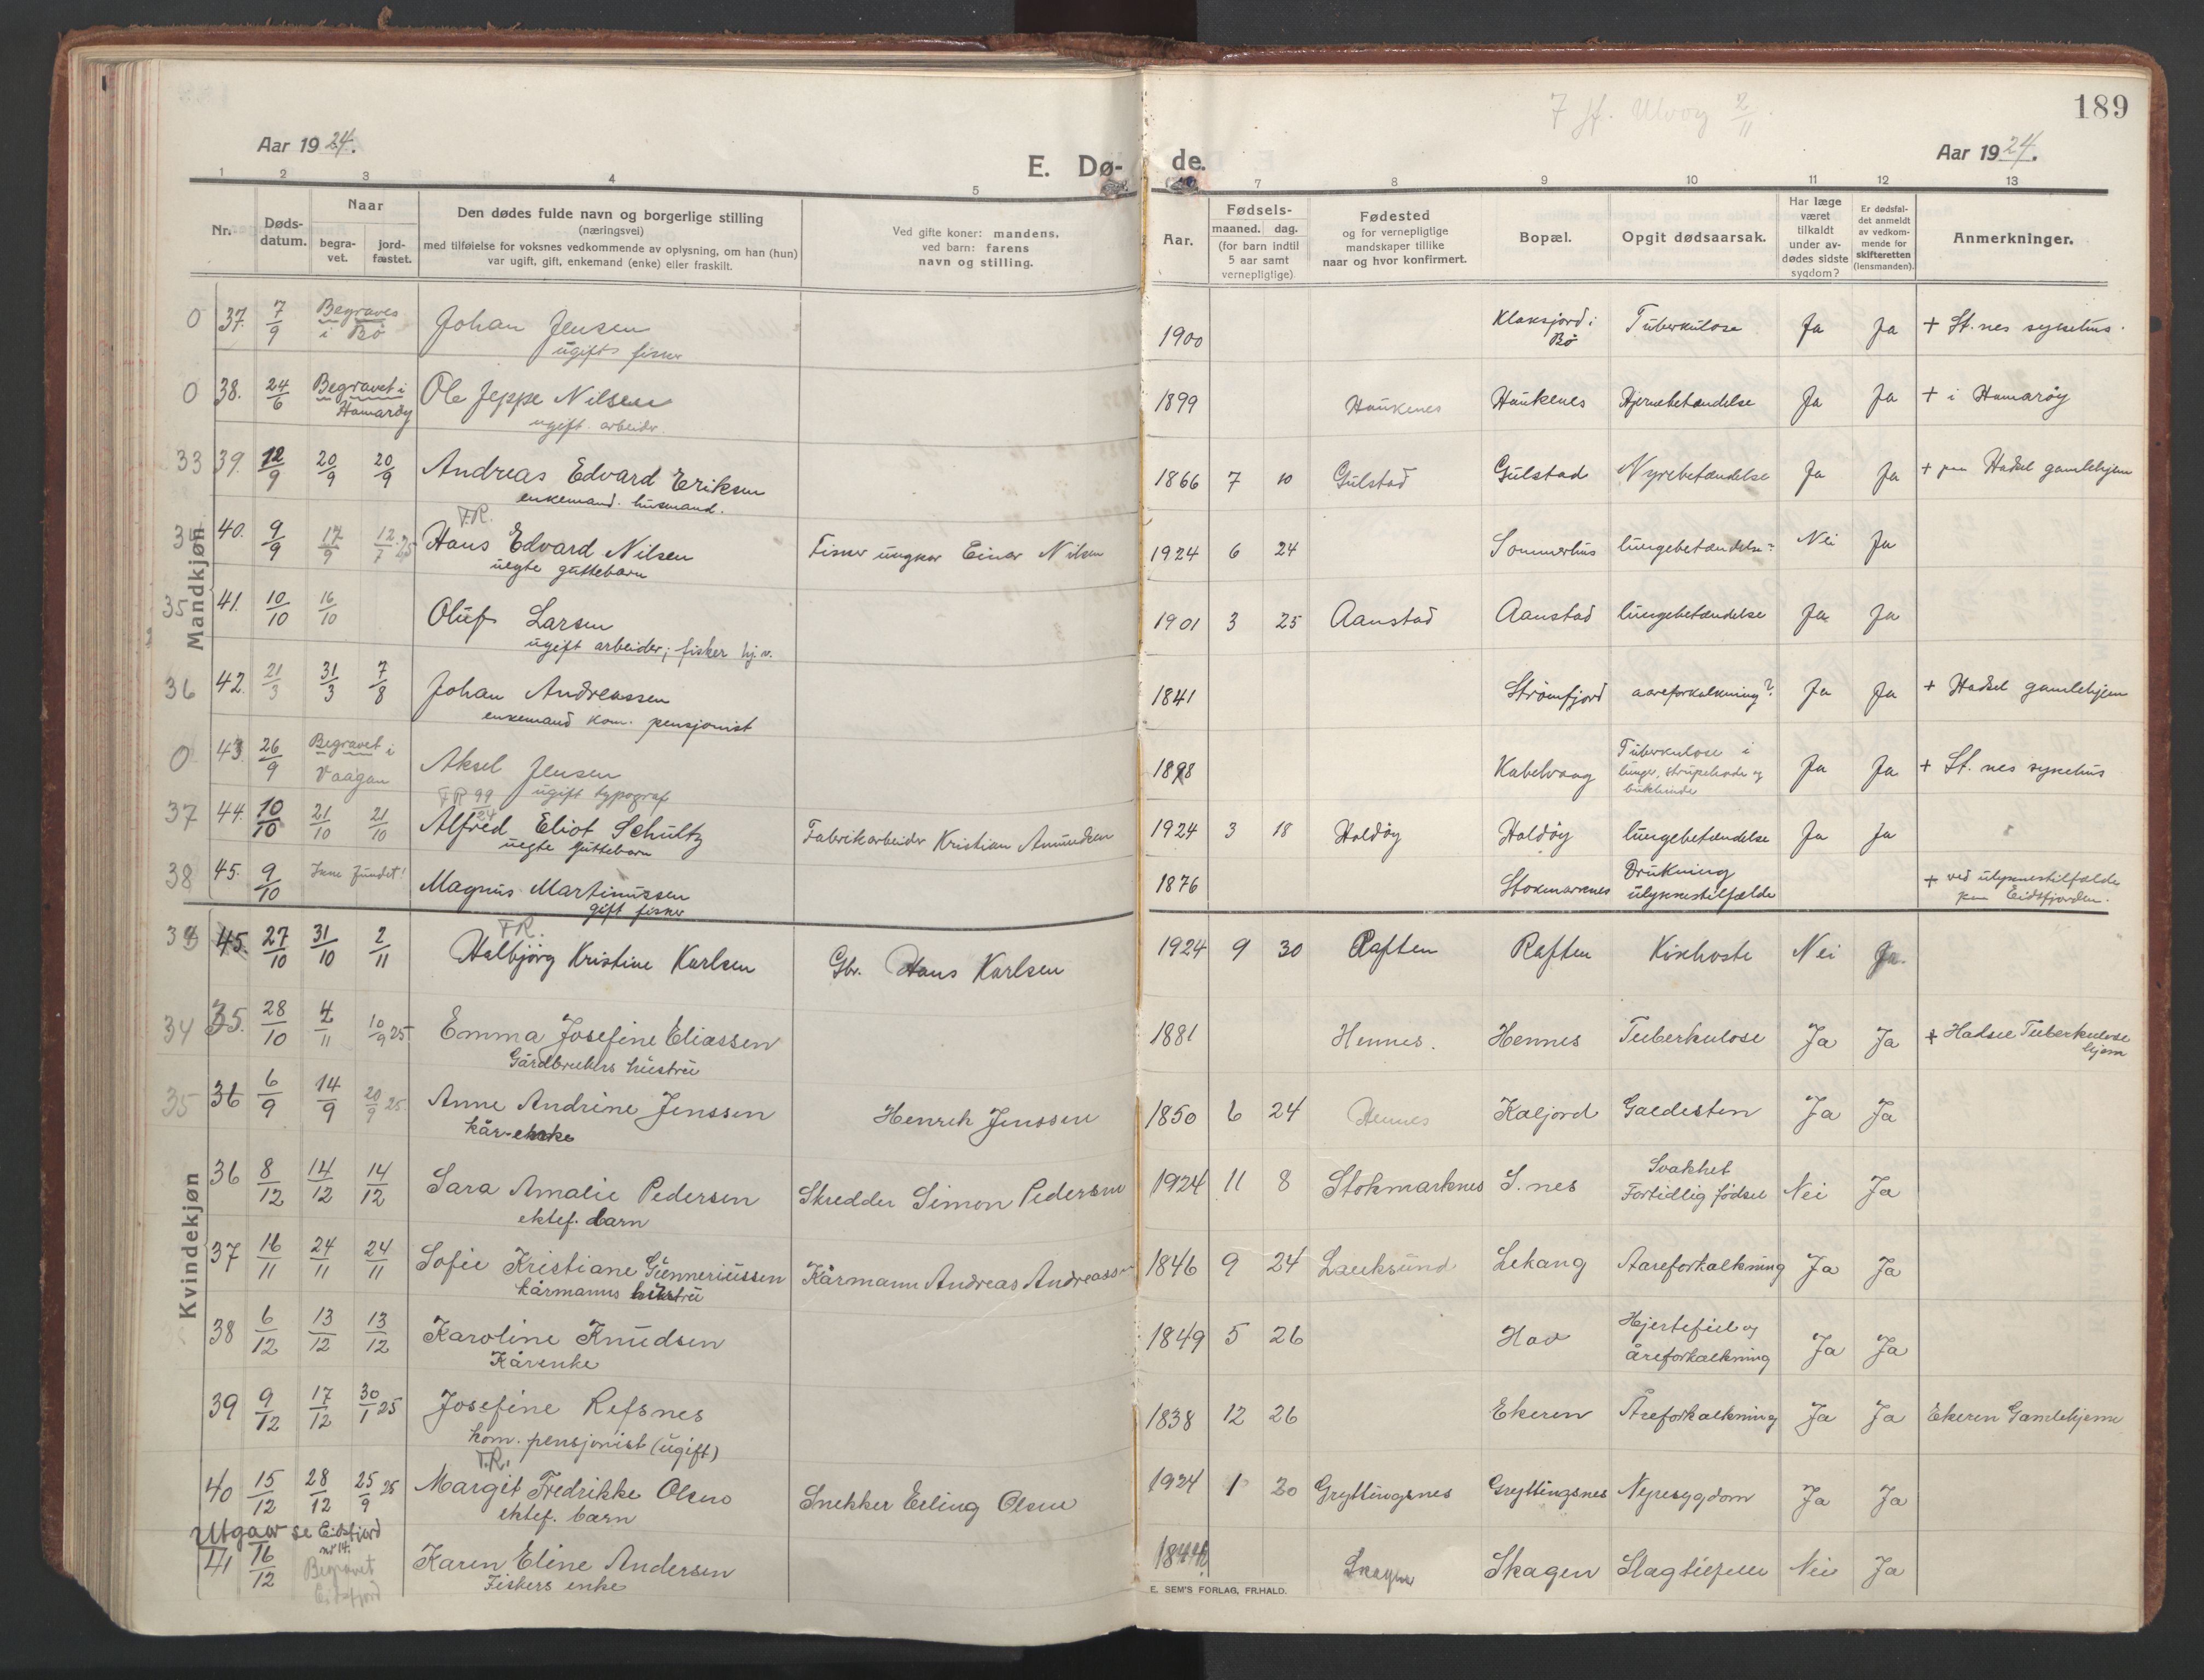 189
7 ff. Ulvøy 2/11
Aar 1924.
E. Dø-
de.
Aar 1924.
1 2 3 4 5 7 8 9 10 11 12 13
Nr.
Døds-
datum.
Naar
begra-
vet.
jord-
fæstet.
Den dødes fulde navn og borgerlige stilling
(næringsvei)
med tilføielse for voksnes vedkommende av oplysning, om han (hun)
var ugift, gift, enkemand (enke) eller fraskilt.
Ved gifte koner: mandens,
ved barn: farens
navn og stilling.
Aar.
Fødsels-
maaned. dag.
(for barn indtil
5 aar samt
vernepligtige)
Fødested
og for vernepligtige
mandskaper tillike
naar og hvor konfirmert.
Bopæl.
Opgit dødsaarsak.
Har læge
været
tilkaldt
under av-
dødes sidste
sygdom?
Er dødsfal-
det anmeldt
av vedkom-
mende for
skifteretten
(lensmanden).
Anmerkninger.
Mandkjøn
0 37. 7/9 Begraves i Bø Johan Jensen 1900 Klaksjord i Bø Tuberkulose Ja Ja + St.nes sykehus.
ugift fisker
0 38. 24/6 Begravet i Hamarøy Ole Jeppe Nilsen 1899 Haukenes Haukenes Hjernebetændelse Ja Ja + i Hamarøy
ugift arbeider.
33 39. 12/9 20/9 20/9 Andreas Edvard Eriksen 1866 7 10 Gulstad Gulstad Nyrebetændelse Ja Ja + paa Hadsel gamlehjem
enkemand. husmand.
F.R.
40. 9/9 17/9 12/7 25 Hans Edvard Nilsen Fisker ungkar Einar Nilsen 1924 6 24 Sommerhus lungebetændelse? Nei Ja
uegte guttebarn
35 41. 10/10 16/10 Oluf Larsen 1901 3 25 Aanstad Aanstad lungebetændelse Ja Ja
ugift arbeider; fisker hj. v.
36 42. 21/3 31/3 7/8 Johan Andreassen 1841 Strømfjord aareforkalkning? Ja Ja + Hadsel gamlehjem
enkemand kom. pensjonist
0 43. 26/9 Begravet i Vaagan Aksel Jensen 1898 Kabelvaag Tuberkulose i lunger, strupehode og bukhinde Ja Ja + St. nes sykehus
ugift typograf
FR 99/24
37 44. 10/10 21/10 21/10 Alfred Eliot Schultz Fabrikarbeider Kristian Amundsen 1924 3 18 Haldøy Haldøy lungebetændelse Ja Ja
uegte guttebarn
38 45. 9/10 Ikke fundet! Magnus Martinussen 1876 Stokmarknes Drukning ulykkestilfælde + ved ulykkestilfælde paa Eidsfjorden.
gift fisker
Kvindekjøn
F.R.
45. 27/10 31/10 2/11 Halbjørg Kristine Karlsen Gbr. Hans Karlsen 1924 9 30 Raften Raften Kikhoste Nei Ja.
34 35. 28/10 4/11 10/9 25 Emma Josefine Eliassen 1881 Hennes. Hennes Tuberkulose Ja Ja + Hadsel Tuberkulose hjem
Gårdbrukers hustru
35 36 6/9 14/9 20/9 25. Anne Andrine Jenssen Henrik Jenssen 1850 6 24 Hennes Kaljord Galdesten Ja Ja
kår-enke
36 8/12 14/12 14/12 Sara Amalie Pedersen Skredder Simon Pedersen 1924 11 8 Stokmarknes S.nes Svakhet Fortidlig fødsel Nei Ja
ektef. barn
37 16/11 24/11 24/11 Sofie Kristiane Gunneriussen Kårmann Andreas Andreassen 1846 9 24 Lauksund Lekang Aareforkalkning Ja Ja
kårmanns hustru
38 6/12 13/12 13/12 Karoline Knudsen 1849 5 26 Hav Hjertefeil og åreforkalkning Ja Ja
Kårenke
39 9/12 17/12 30/1 25 Josefine Refsnes 1838 12 26 Ekeren Åreforkalkning Ja Ja Ekeren Gamlehjem
kom. pensjonist (ugift)
F.R.
40 15/12 28/12 25/9 25 Margit Fredrikke Olsen Snekker Erling Olsen 1924 1 20 Gryttingsnes Gryttingsnes Nyresygdom Ja Ja
ektef. barn
Utgaar se Eidsfjord nr 14.
41 16/12 Begravet Eidsfjord Karen Eline Andersen Skagen Skagen Slagtilfelle Nei Ja
Fiskers enke
E. SEM'S FORLAG, FR.HALD.